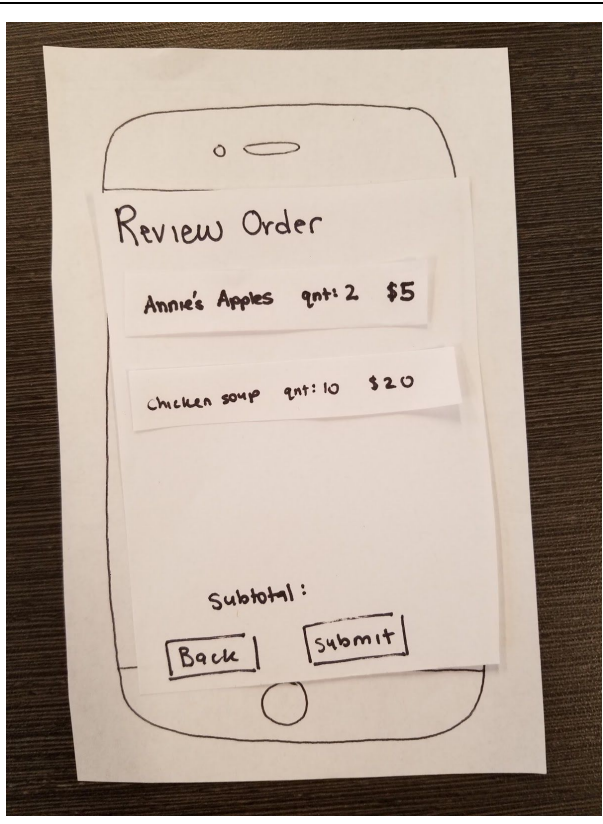 Review Order
Annie's Apples qnt: 2 $5
Chicken soup qnt: 10 $20
Subtotal:
Back Submit